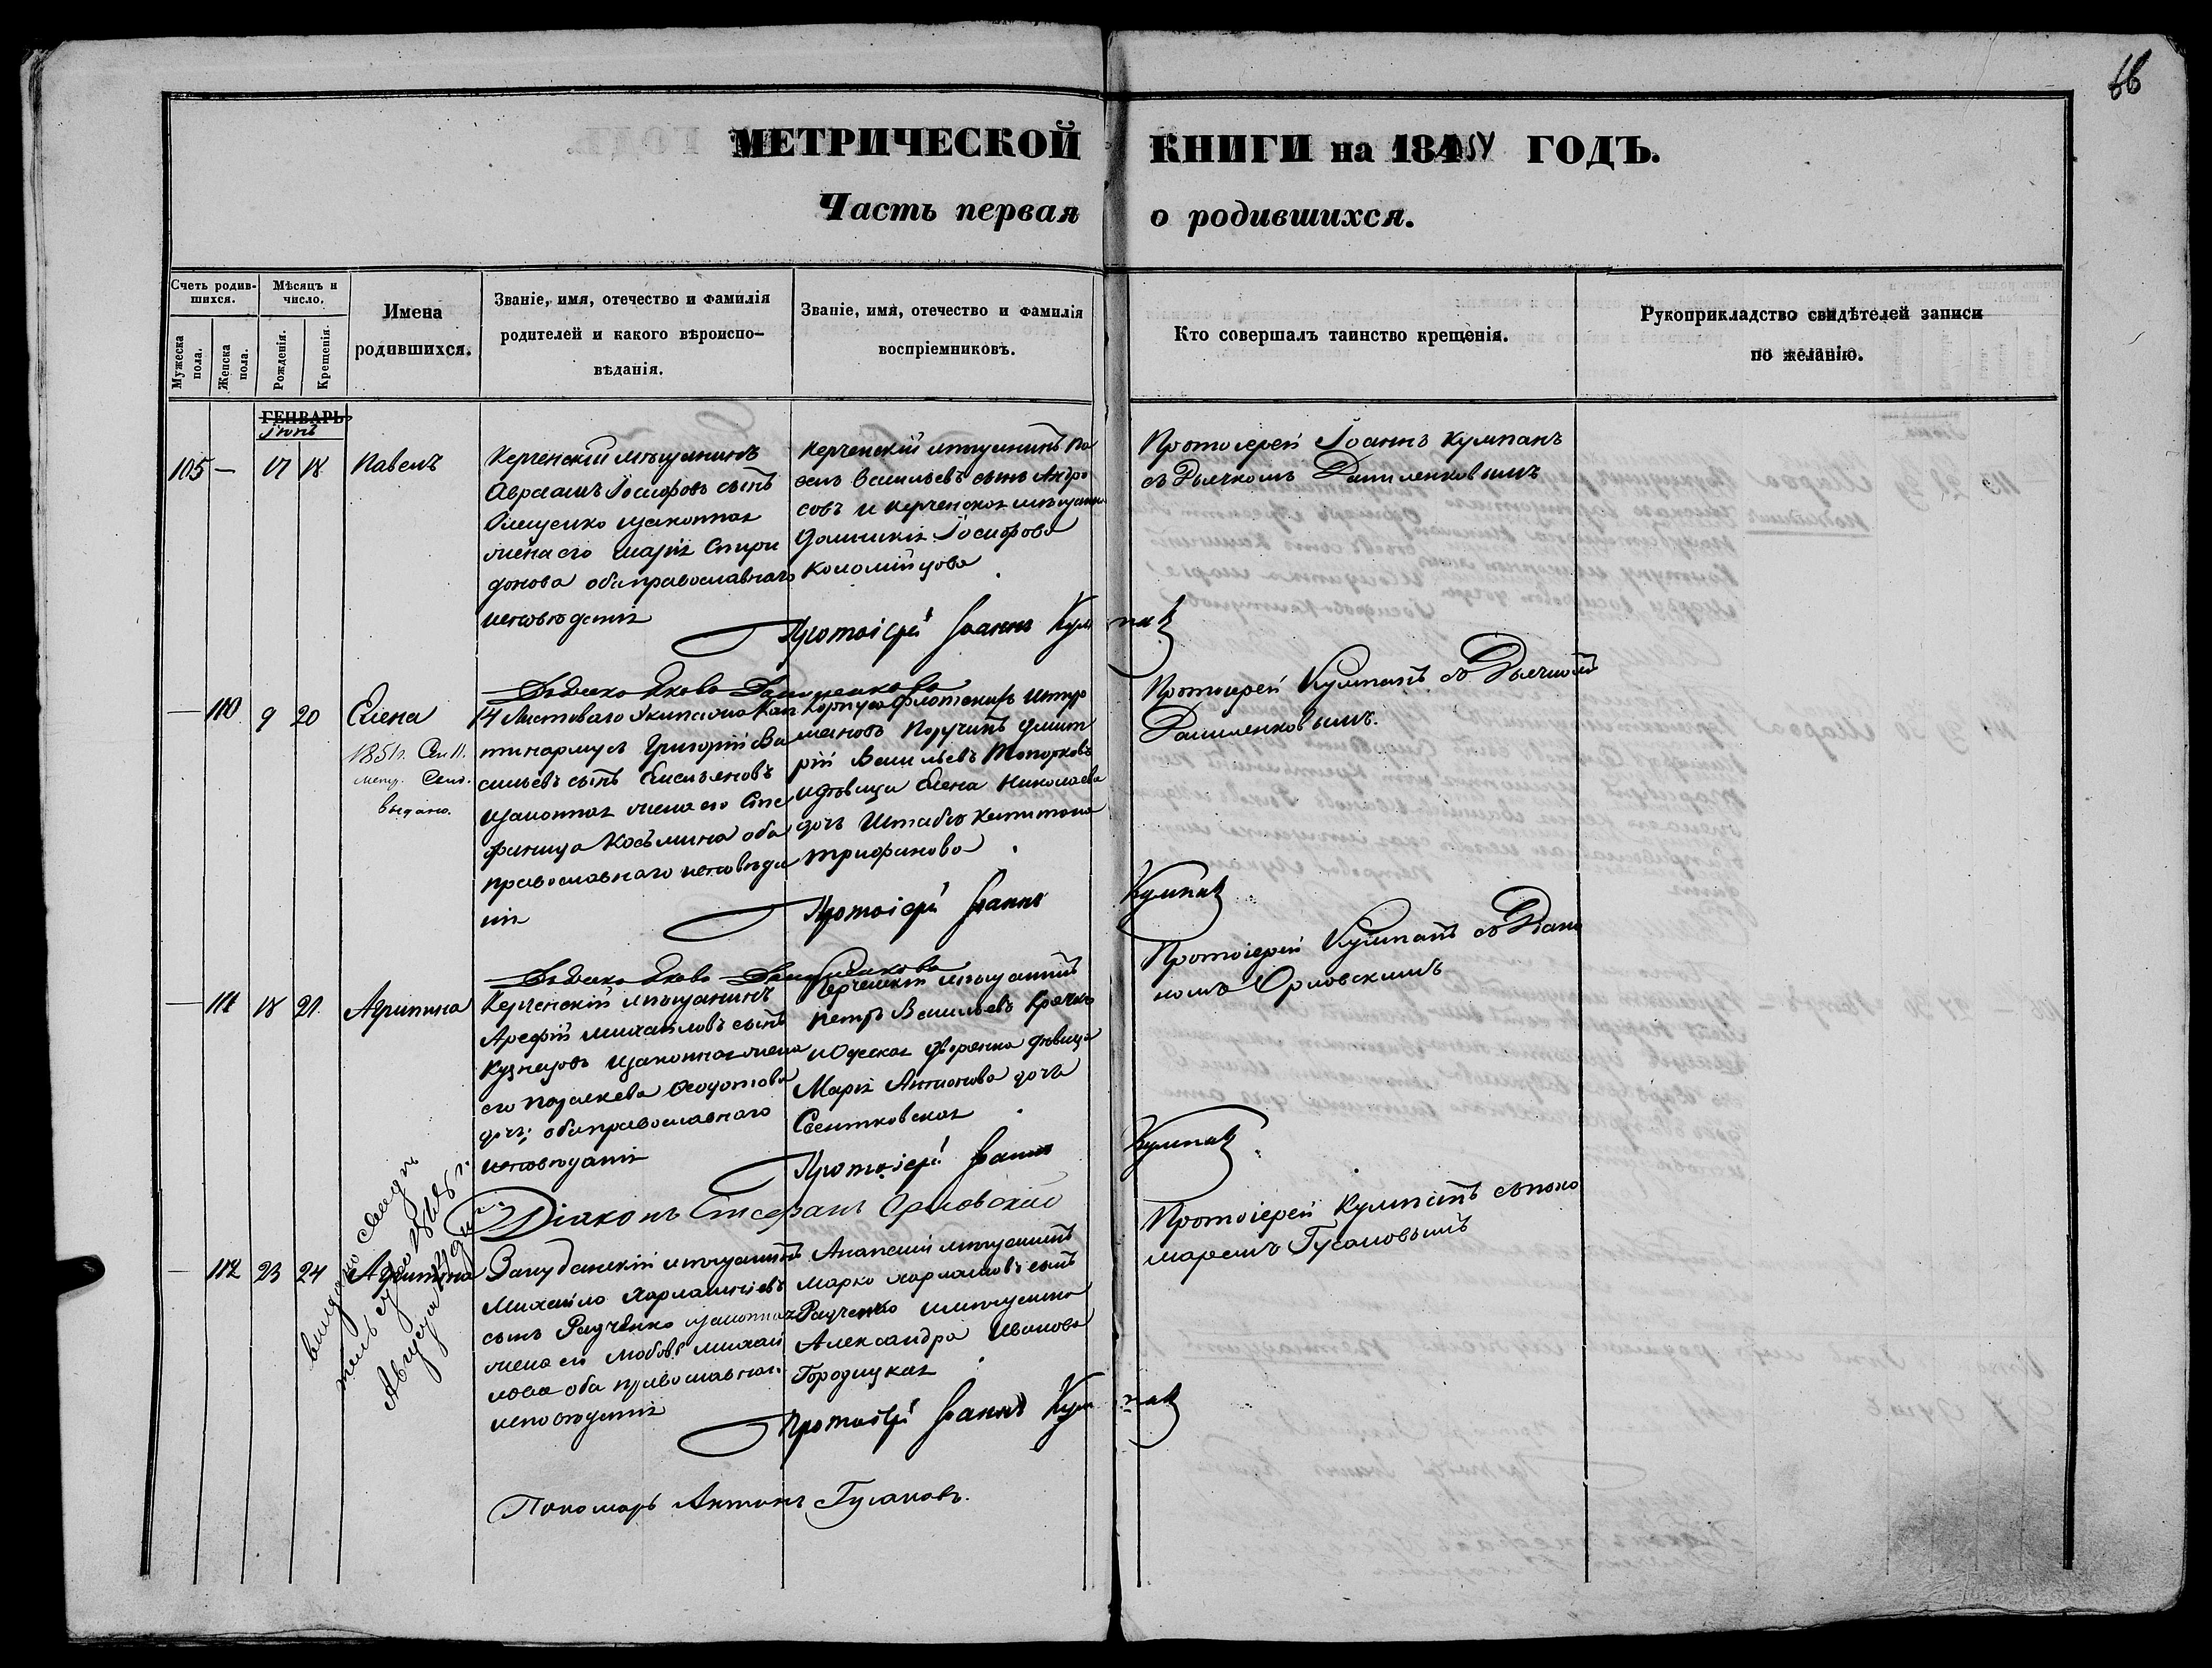 66
МЕТРИЧЕСКОЙ КНИГИ на 184 ГОДЪ.
Часть первая о родившихся.
Счетъ родив-
шихся.
Мужеска пола.
Женска пола.
Мѣсяцъ и
число.
Рожденія.
Крещенія.
Имена
родившихся.
Званіе, имя, отечество и фамилія
родителей и какого вѣроиспо-
вѣданія.
Званіе, имя, отечество и фамилія
воспріемниковъ.
Кто совершалъ таинство крещенія.
Рукоприкладство свидѣтелей записи
по желанію.
ГЕНВАРЬ
Іюнь
105 — 17 18 Павелъ
Керченскій мѣщанинъ
Авраамъ Іосифовъ сынъ
законная
жена его Марія Спири
донова оба православнаго
исповѣданія
Керченскій мѣщанинъ Па
велъ Васильевъ сынъ
совъ и керченская мѣщанка
Іосифова
Коломійцова
Протоіерей Іоаннъ Кумпанъ
съ Дьячкомъ Даниленковымъ
Протоіерей Іоаннъ Кумпан
Дьячекъ Яковъ Даниленковъ
— 110 9 20 Елена
1851 г. Сен. 11.
выдано.
14 Ластоваго Экипажа Кап
тинармусъ Григорій Ва
сильевъ сынъ Емельяновъ
законная жена его Сте
фанида Косьмина оба
православнаго исповѣда
нія
Корпуса Флотскихъ Штур
мановъ Поручикъ Дмит
рій Васильевъ Топорковъ
и дѣвица Елена Николаева
дочь Штабсъ Капитана
Трифонова
Протоіерей Кумпанъ съ Дьячкомъ
Даниленковымъ.
Протоіерей Іоаннъ Кумпан
Дьячекъ Яковъ Даниленковъ
— 111 18 21 Агрипина
Керченскій мѣщанинъ
Арефій Михайловъ сынъ
Кузнецовъ законная жена
его Параскева Федотова
дочь; оба православнаго
исповѣданія
Керченскій мѣщанинъ
Петръ Васильевъ
и Одеская дворянка дѣвица
Марія Антонова дочь
Свентковская
Протоіерей Кумпанъ съ Діако
номъ Орловскимъ
Протоіерей Іоаннъ Кумпан
Діаконъ Стефанъ Орловскій
— 112 23 24 Агрипина
выдано свидѣ
Августа
Михайло Харлампіевъ
сынъ Радченко законная
жена его Любовь Михай
лова оба православнаг.
исповѣданія
Анапскій мѣщанинъ
Марко Харламовъ сынъ
Радченко и мѣщанка
Александра Иванова
Городицкая
Протоіерей Кумпанъ съ поно
маремъ Гусаковымъ
Протоіерей Іоаннъ Кумпан
Пономарь Антонъ Гусаковъ.